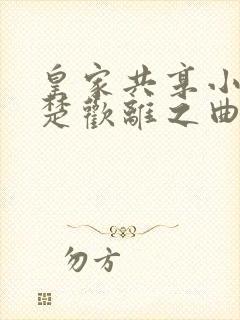 皇家共享小
楚歡離之曲
勿方